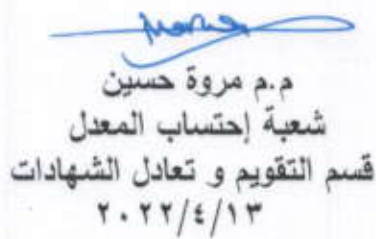 م.م مروة حسين
شعبة إحتساب المعدل
قسم التقويم و تعادل الشهادات
٢٠٢٢/٤/١٣